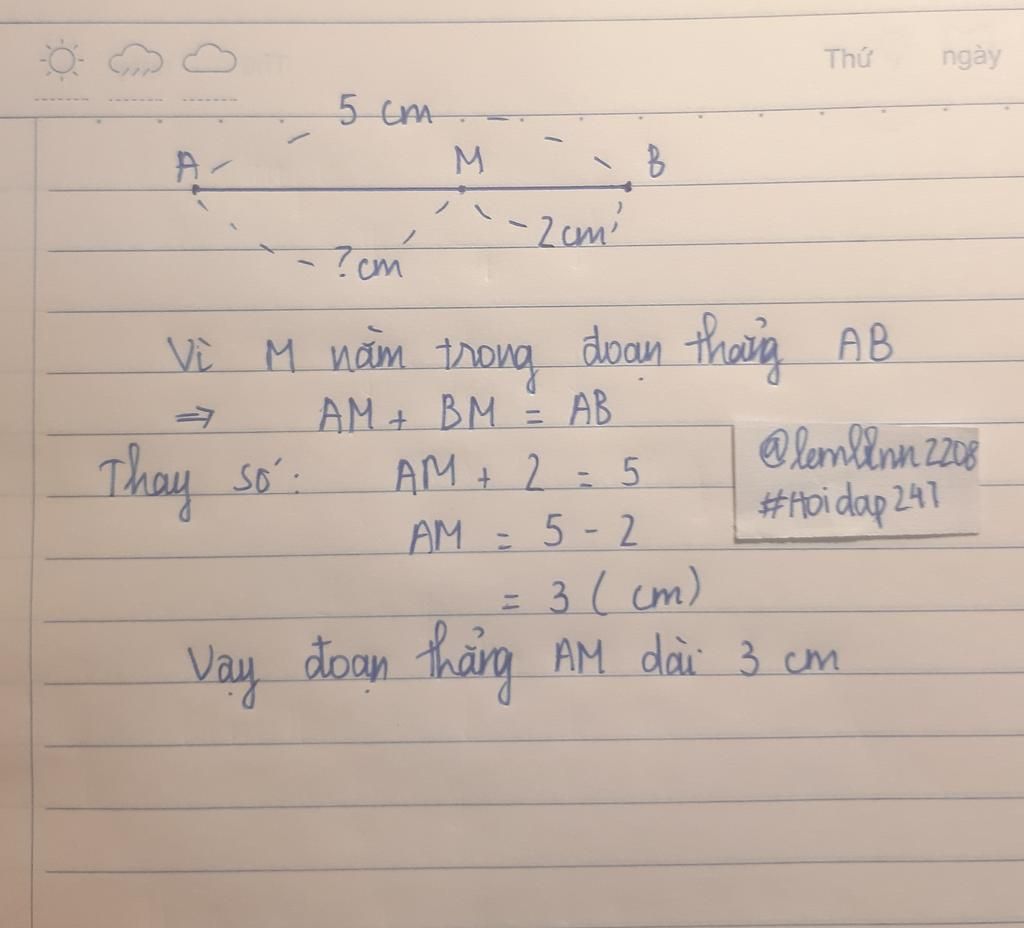 Thứ ngày
5 cm
A M B
? cm 2 cm
Vì M nằm trong đoạn thẳng AB
=> AM + BM = AB
Thay số: AM + 2 = 5
@lemllnn2208
#Hoidap247
AM = 5 - 2
= 3 ( cm)
Vậy đoạn thẳng AM dài 3 cm